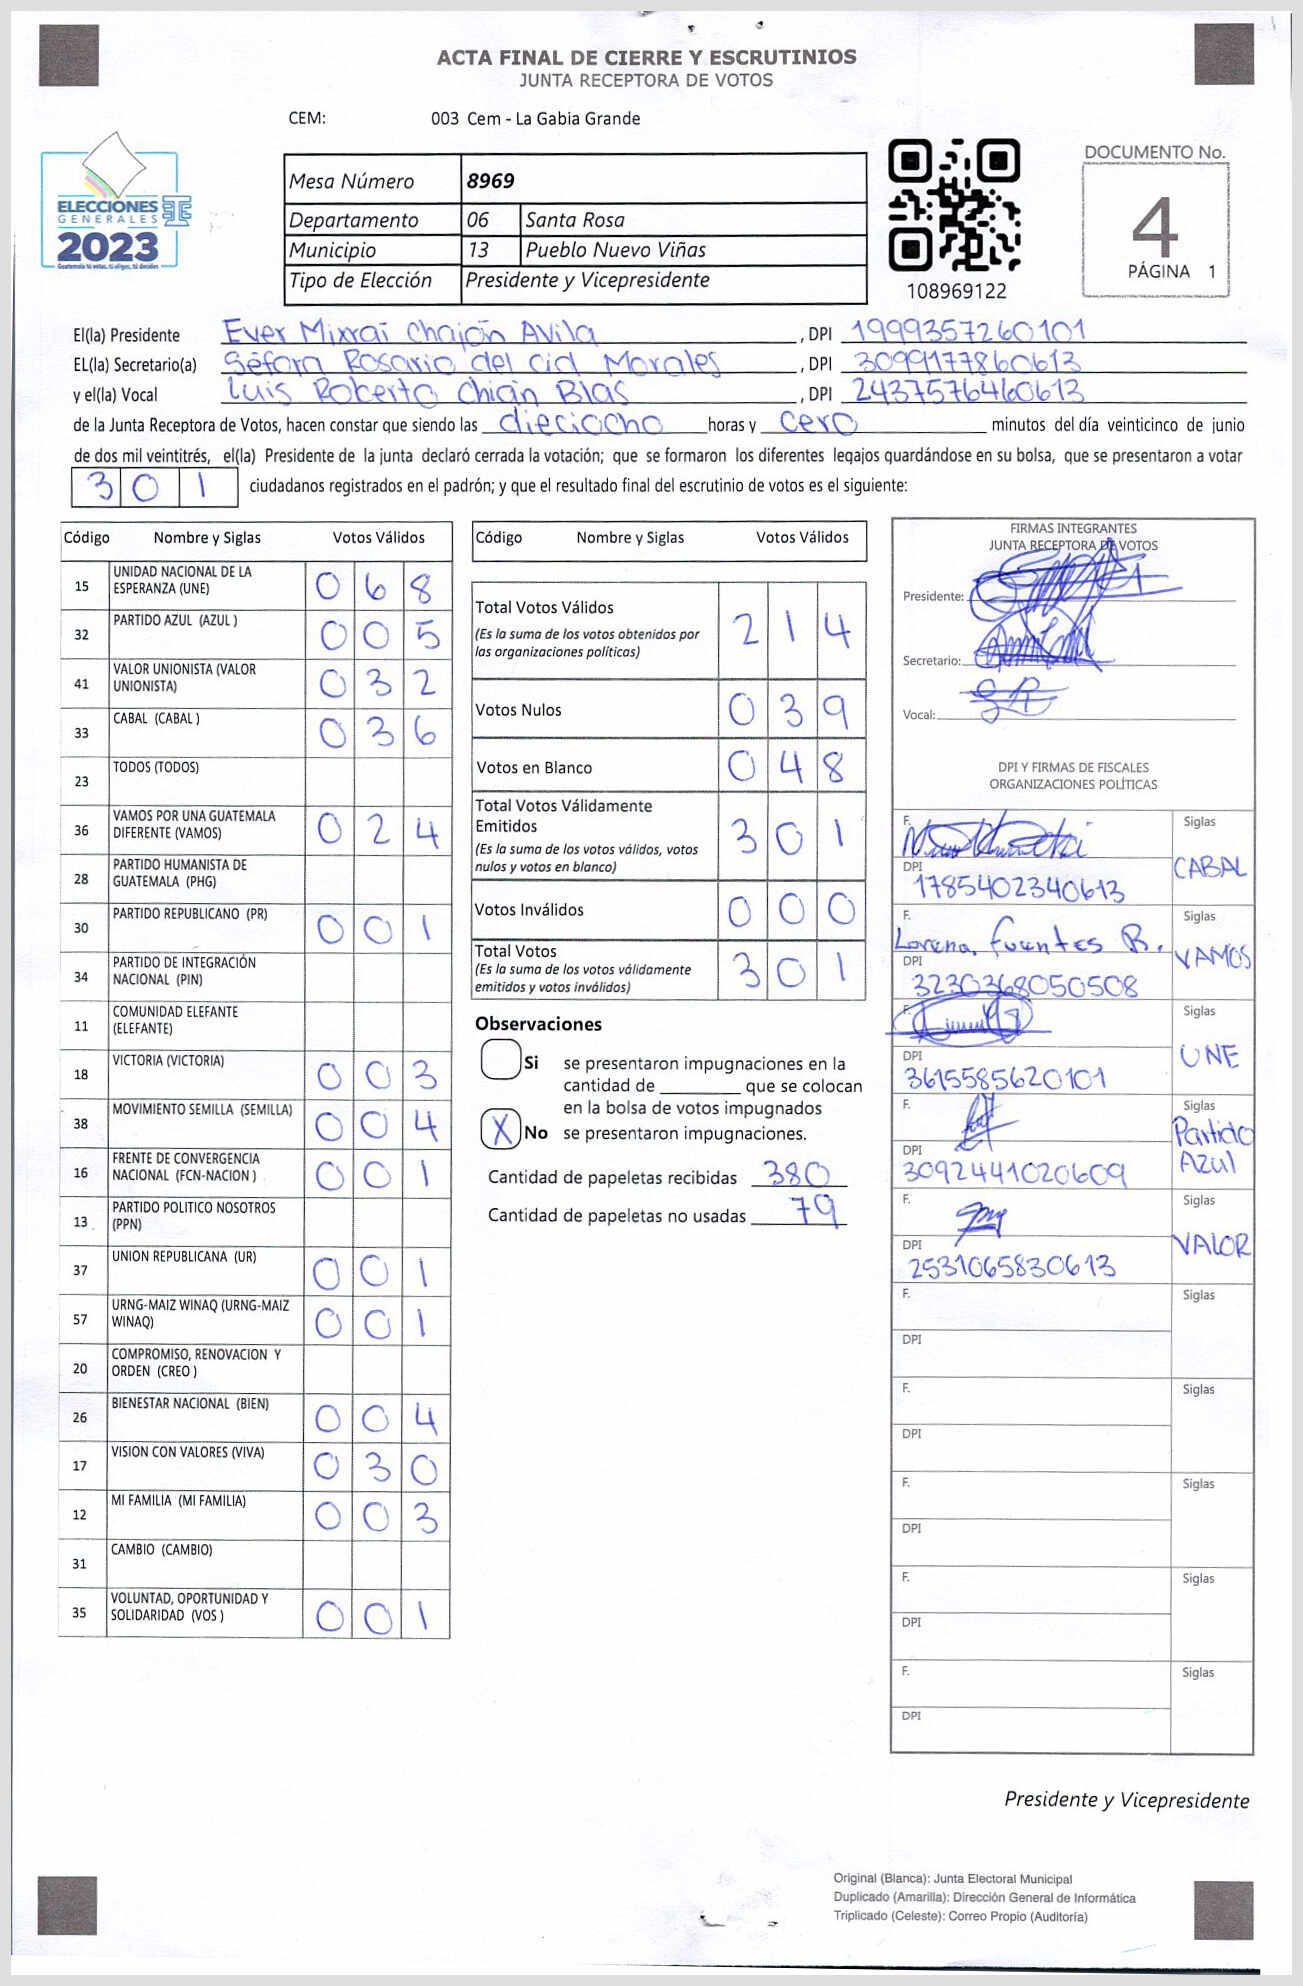 ACTA FINAL DE CIERRE Y ESCRUTINIOS
JUNTA RECEPTORA DE VOTOS
CEM: 003 Cem - La Gabia Grande
ELECCIONES
GENERALES
2023
Guatemala tú votas, tú eliges, tú decides
Mesa Número 8969
Departamento 06 Santa Rosa
Municipio 13 Pueblo Nuevo Viñas
Tipo de Elección Presidente y Vicepresidente
108969122
DOCUMENTO No.
4
PÁGINA 1
El(la) Presidente Ever Mixraí Chajón Avila, DPI 1999357260101
EL(la) Secretario(a) Séfora Rosario del Cid Morales, DPI 3099177860613
y el(la) Vocal Luis Roberto Chián Blas, DPI 2437576460613
de la Junta Receptora de Votos, hacen constar que siendo las dieciocho horas y cero minutos del día veinticinco de junio
de dos mil veintitrés, el(la) Presidente de la junta declaró cerrada la votación; que se formaron los diferentes legajos guardándose en su bolsa, que se presentaron a votar
301 ciudadanos registrados en el padrón; y que el resultado final del escrutinio de votos es el siguiente:
Código Nombre y Siglas Votos Válidos
15 UNIDAD NACIONAL DE LA
ESPERANZA (UNE) 068
32 PARTIDO AZUL (AZUL ) 005
41 VALOR UNIONISTA (VALOR
UNIONISTA) 032
33 CABAL (CABAL ) 036
23 TODOS (TODOS)
36 VAMOS POR UNA GUATEMALA
DIFERENTE (VAMOS) 024
28 PARTIDO HUMANISTA DE
GUATEMALA (PHG)
30 PARTIDO REPUBLICANO (PR) 001
34 PARTIDO DE INTEGRACIÓN
NACIONAL (PIN)
11 COMUNIDAD ELEFANTE
(ELEFANTE)
18 VICTORIA (VICTORIA) 003
38 MOVIMIENTO SEMILLA (SEMILLA) 004
16 FRENTE DE CONVERGENCIA
NACIONAL (FCN-NACION ) 001
13 PARTIDO POLITICO NOSOTROS
(PPN)
37 UNION REPUBLICANA (UR) 001
57 URNG-MAIZ WINAQ (URNG-MAIZ
WINAQ) 001
20 COMPROMISO, RENOVACION Y
ORDEN (CREO )
26 BIENESTAR NACIONAL (BIEN) 004
17 VISION CON VALORES (VIVA) 030
12 MI FAMILIA (MI FAMILIA) 003
31 CAMBIO (CAMBIO)
35 VOLUNTAD, OPORTUNIDAD Y
SOLIDARIDAD (VOS ) 001
Código Nombre y Siglas Votos Válidos
Total Votos Válidos 214
(Es la suma de los votos obtenidos por
las organizaciones políticas)
Votos Nulos 039
Votos en Blanco 048
Total Votos Válidamente
Emitidos 301
(Es la suma de los votos válidos, votos
nulos y votos en blanco)
Votos Inválidos 000
Total Votos 301
(Es la suma de los votos válidamente
emitidos y votos inválidos)
Observaciones
Si se presentaron impugnaciones en la
cantidad de ________ que se colocan
en la bolsa de votos impugnados
X No se presentaron impugnaciones.
Cantidad de papeletas recibidas 380
Cantidad de papeletas no usadas 79
FIRMAS INTEGRANTES
JUNTA RECEPTORA DE VOTOS
Presidente:
Secretario:
Vocal:
DPI Y FIRMAS DE FISCALES
ORGANIZACIONES POLÍTICAS
F. Siglas
CABAL
DPI
1785402340613
F. Siglas
Lorena Fuentes B. VAMOS
DPI
3230368050508
F. Siglas
UNE
DPI
3615585620101
F. Siglas
Partido
Azul
DPI
3092441020609
F. Siglas
VALOR
DPI
2531065830613
F. Siglas
DPI
F. Siglas
DPI
F. Siglas
DPI
F. Siglas
DPI
F. Siglas
DPI
Presidente y Vicepresidente
Original (Blanca): Junta Electoral Municipal
Duplicado (Amarilla): Dirección General de Informática
Triplicado (Celeste): Correo Propio (Auditoría)